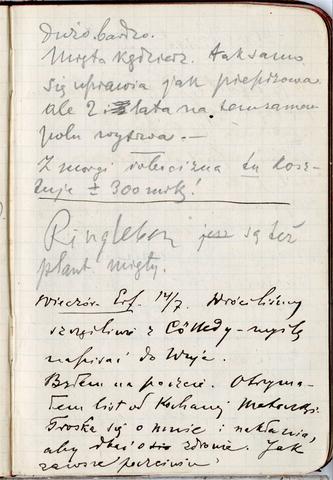 Dużo bardzo.
Mięta Kędzierz. tak samo
się uprawia jak pieprzowa
ale 2 lata na tem samem
polu wytrwa. —
Z morgi robocizna tu kosz-
tuje ± 300 mrk!
Ringleben jest są też
plant. mięty.
Wieczór Erf. 14/7. Wróciliśmy
szczęśliwie z Cölledy - myślę
napisać do Wuja.
Byłem na poczcie. Otrzyma-
łem list od Kochanej
Troska się o mnie i nakłania,
aby dbać o zdrowie. Jak
zawsze poczciwa